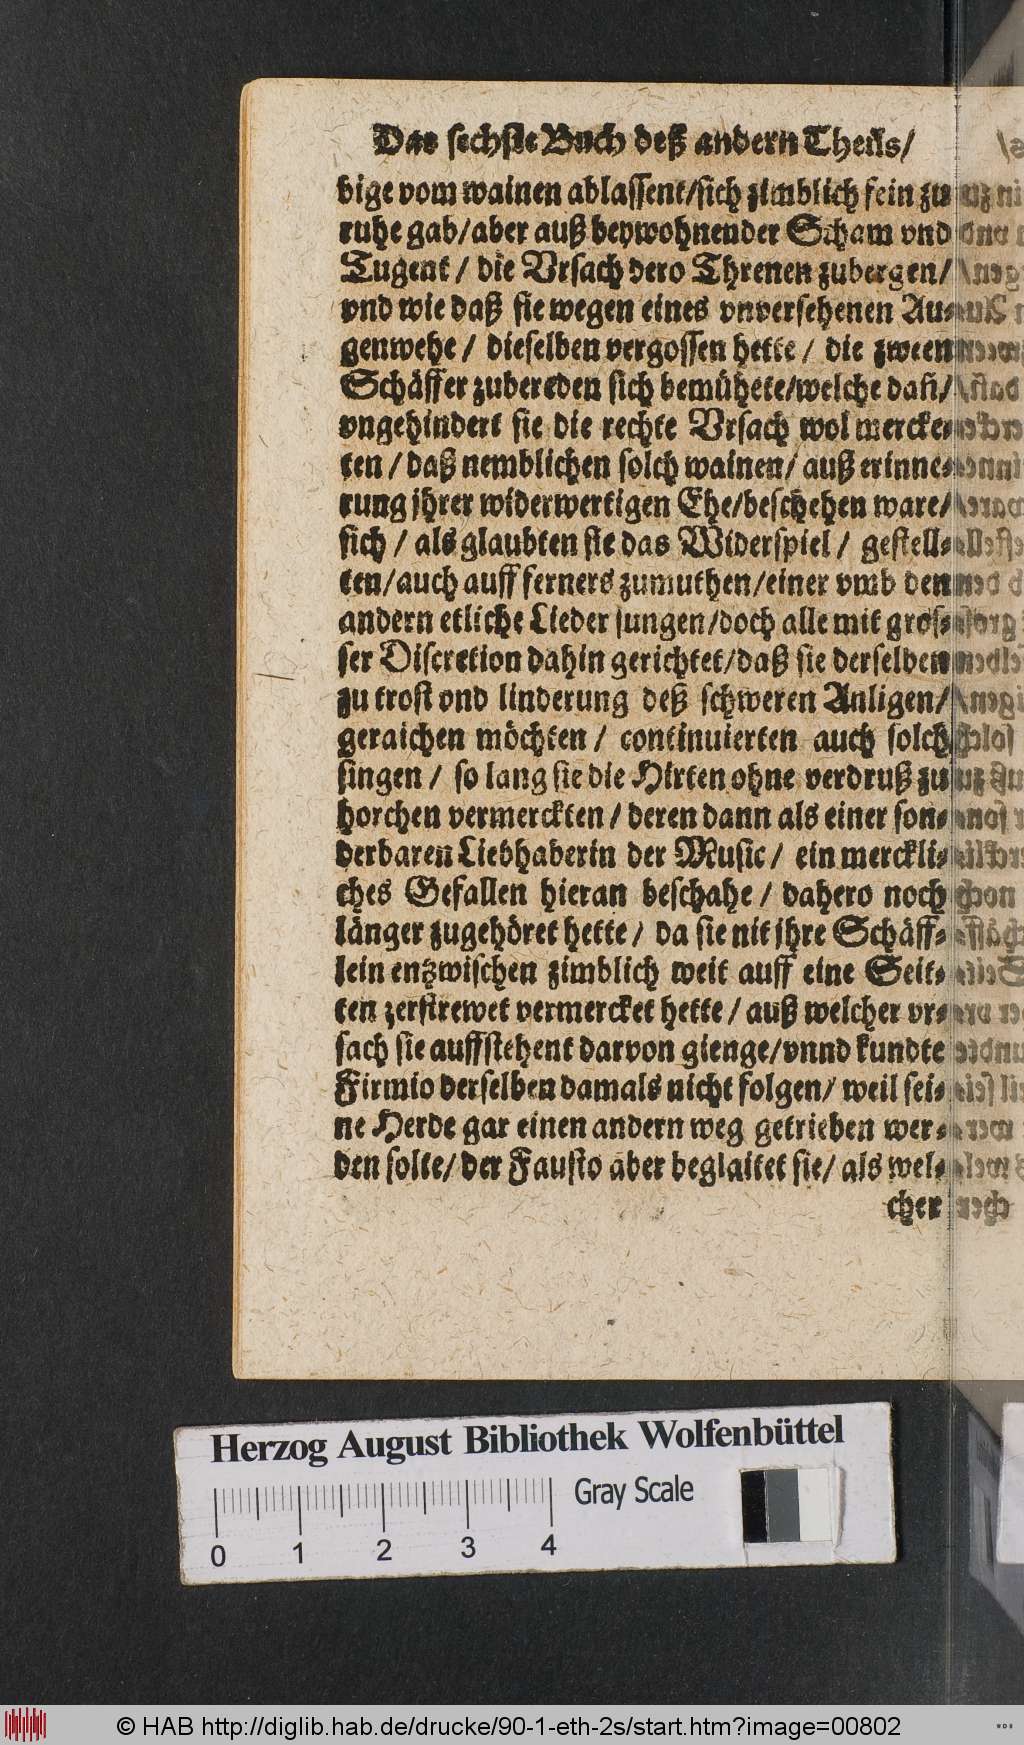 Das sechste Buch deß andern Theils/
bige vom wainen ablassent/sich zimblich fein zu
ruhe gab/aber auß beywohnender Scham vnd
Tugent / die Vrsach dero Threnen zubergen/
vnd wie daß sie wegen eines vnversehenen Au-
genwehe / dieselben vergossen hette / die zween
Schäffer zubereden sich bemühete/welche dañ/
vngehindert sie die rechte Vrsach wol mercke-
ten / daß nemblichen solch wainen/ auß erinne-
rung jhrer widerwertigen Ehe/beschehen ware/
sich / als glaubten sie das Widerspiel / gestell-
ten/auch auff ferners zumuthen/einer vmb den
andern etliche Lieder sungen/doch alle mit gros-
ser Discretion dahin gerichtet/daß sie derselben
zu trost vnd linderung deß schweren Anligen/
geraichen möchten / continuierten auch solch
singen / so lang sie die Hirten ohne verdruß zu
horchen vermerckten / deren dann als einer son-
derbaren Liebhaberin der Music / ein merckli-
ches Gefallen hieran beschahe / dahero noch
länger zugehöret hette / da sie nit jhre Schäff-
lein entzwischen zimblich weit auff eine Seit-
ten zerstrewet vermercket hette / auß welcher vr-
sach sie auffstehent darvon gienge/vnnd kundte
Firmio derselben damals nicht folgen/ weil sei-
ne Herde gar einen andern weg getrieben wer-
den solte/ der Fausto aber beglaitet sie/ als wel-
cher
Herzog August Bibliothek Wolfenbüttel
Gray Scale
0 1 2 3 4
© HAB http://diglib.hab.de/drucke/90-1-eth-2s/start.htm?image=00802